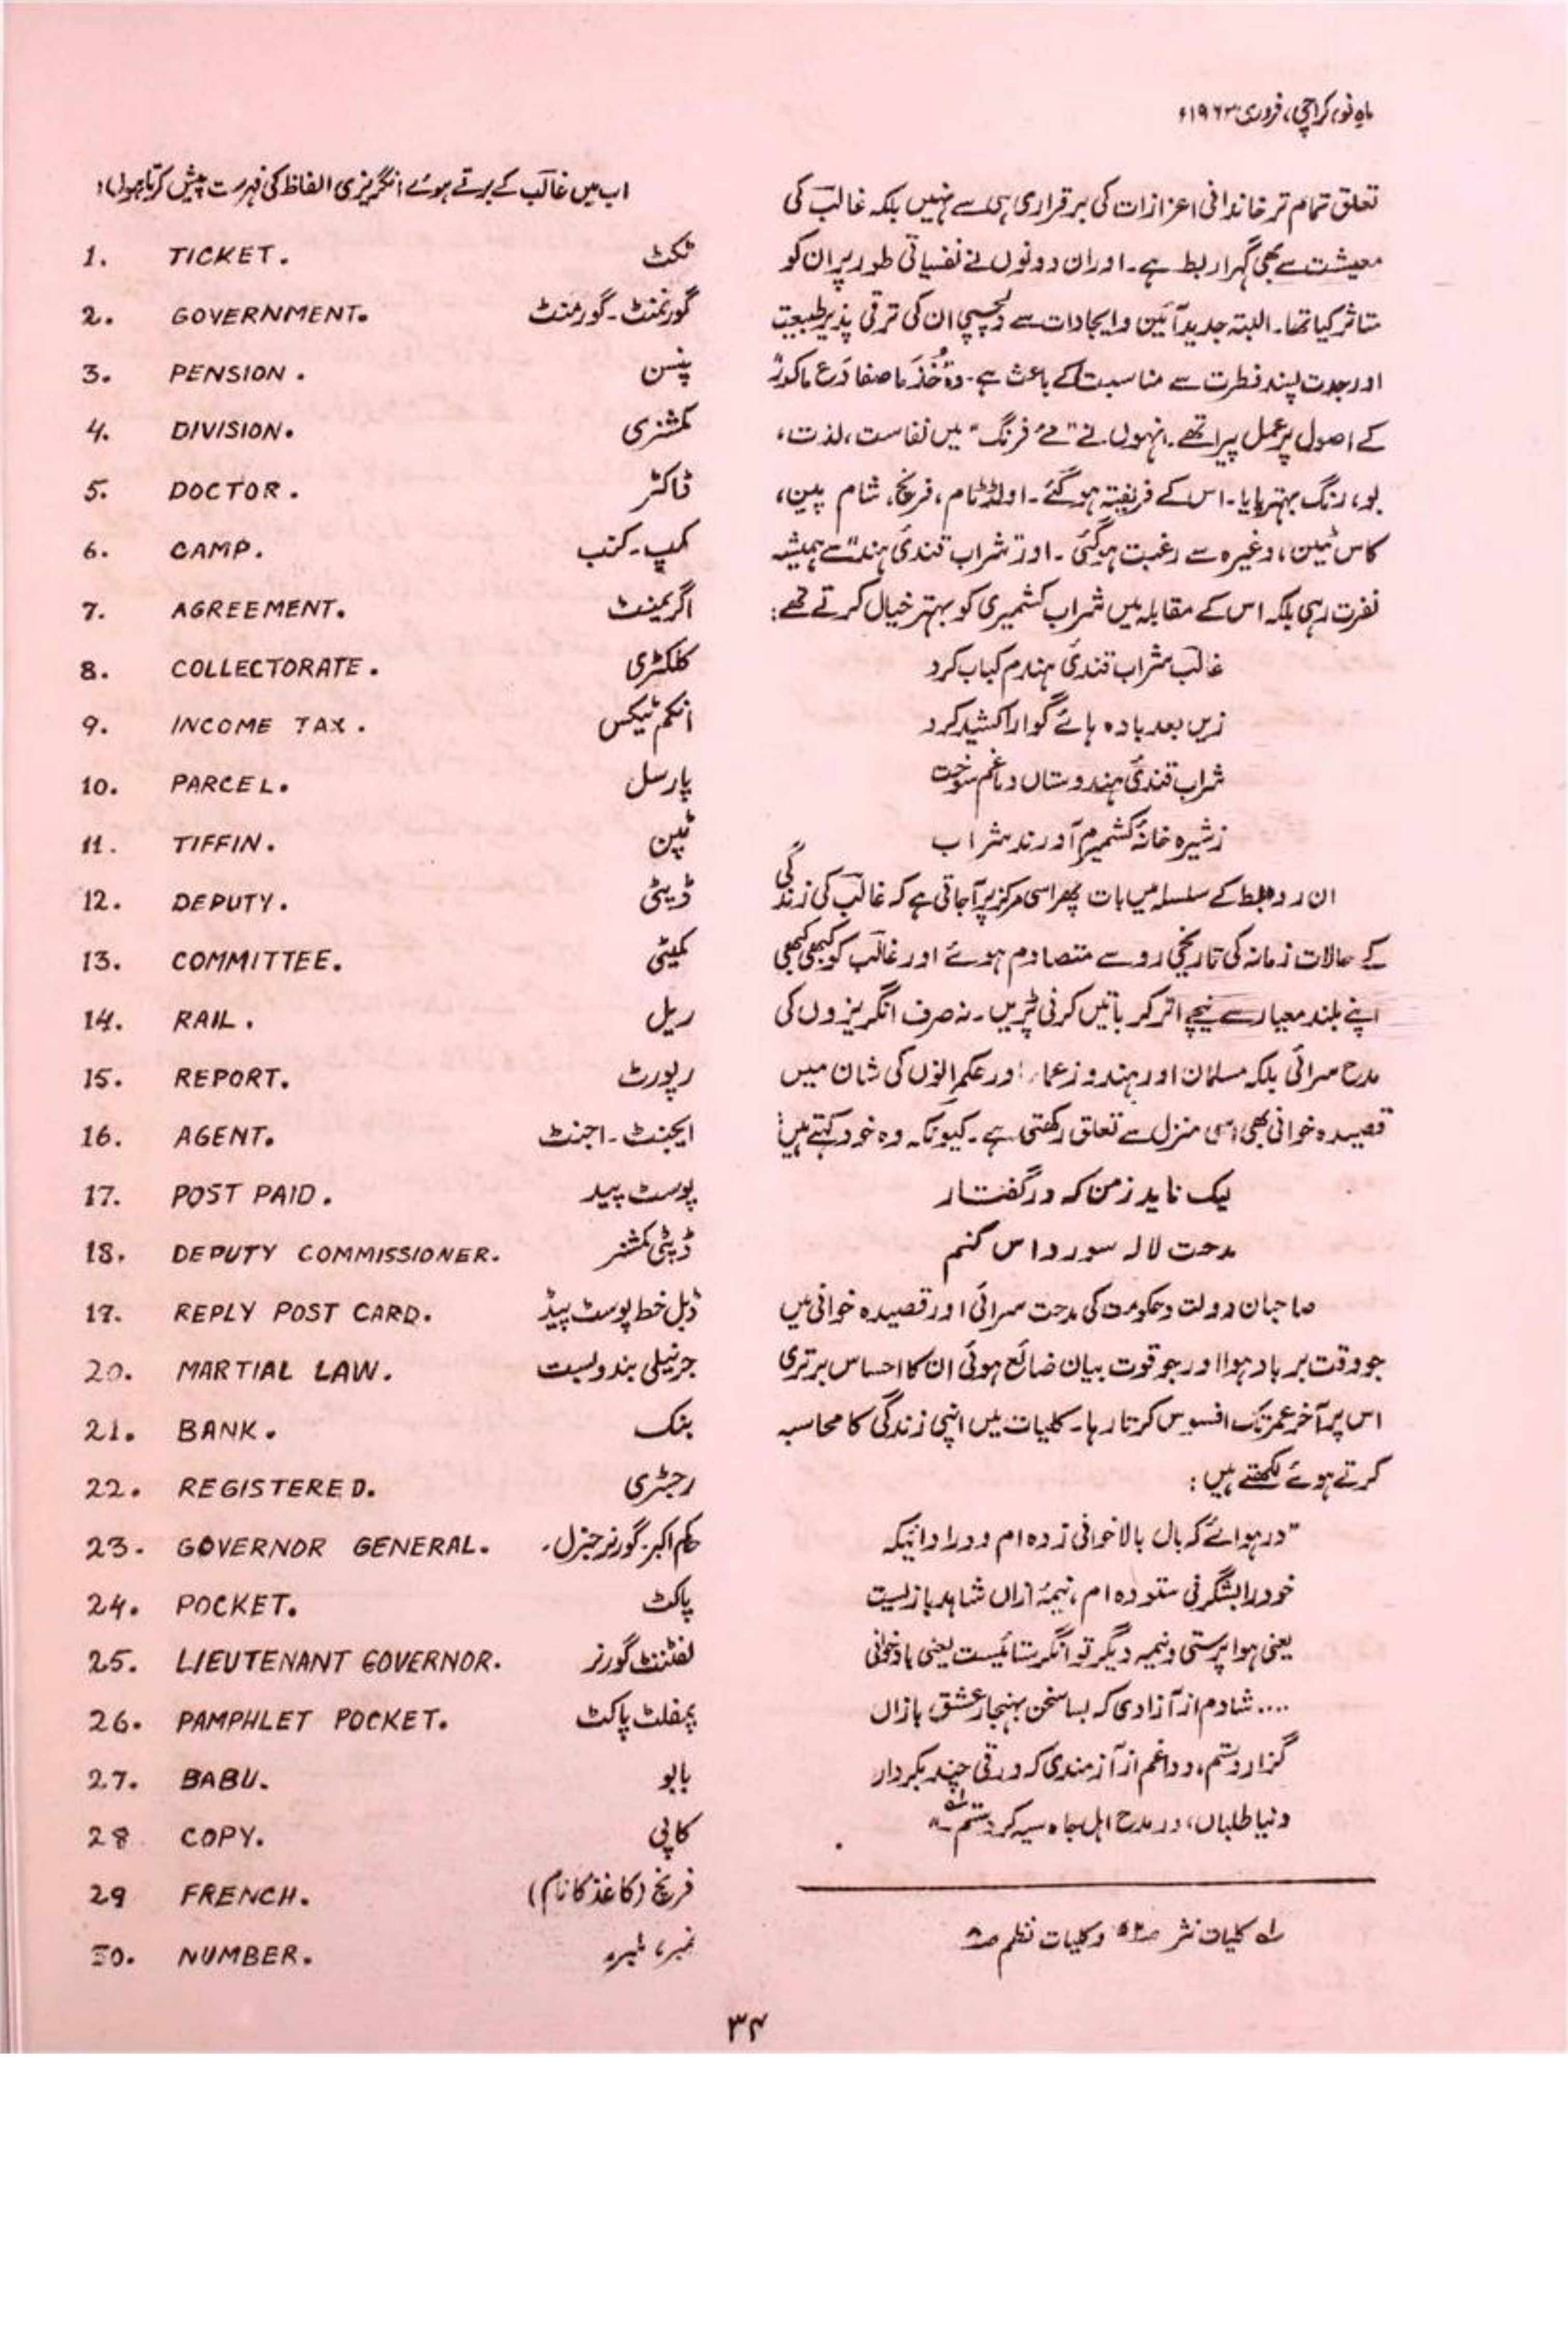 ماہِ نو، کراچی، فروری ۱۹۶۳ء
تعلق تمام تر خاندانی اعزازات کی برقراری ہی سے نہیں بلکہ غالبؔ کی
معیشت سے بھی گہرا ربط ہے۔ اور ان دونوں نے نفسیاتی طور پر ان کو
متاثر کیا تھا۔ البتہ جدید آئین و ایجادات سے دلچسپی ان کی ترقی پذیر طبیعت
اور جدت پسند فطرت سے مناسبت کے باعث ہے۔ وہ "خُذ ما صفا دَع ما کدر"
کے اصول پر عمل پیرا تھے۔ انہوں نے "مے فرنگ" میں نفاست، لذت،
بو، رنگ بہتر پایا۔ اس کے فریفتہ ہو گئے۔ اولڈ ٹام، فرنچ، شام پین،
کاس ٹیلن، وغیرہ سے رغبت ہو گئی۔ اور "شراب قندیٔ ہند" سے ہمیشہ
نفرت رہی بلکہ اس کے مقابلہ میں شراب کشمیری کو بہتر خیال کرتے تھے:
غالبؔ شراب قندیٔ ہندم کباب کرد
زیں بعد بادہ ہائے گوارا کشید کرد
شراب قندیٔ ہندوستاں دماغم سوخت
زشیرہ خانۂ کشمیرم آورند شراب
ان روابط کے سلسلہ میں بات پھر اسی مرکز پر آجاتی ہے کہ غالبؔ کی زندگی
کے حالات زمانہ کی تاریخی رو سے متصادم ہوئے اور غالبؔ کو کبھی کبھی
اپنے بلند معیار سے نیچے اتر کر باتیں کرنی پڑیں۔ نہ صرف انگریزوں کی
مدح سرائی بلکہ مسلمان اور ہندو زعماء اور حکمرانوں کی شان میں
قصیدہ خوانی بھی اسی منزل سے تعلق رکھتی ہے۔ کیونکہ وہ خود کہتے ہیں:
لیک ناید زمن کہ در گفتار
مدحت لالہ سورداس کنم
صاحبان دولت و حکومت کی مدحت سرائی اور قصیدہ خوانی میں
جو وقت برباد ہوا اور جو قوت بیان ضائع ہوئی ان کا احساس برتری
اس پر آخر عمر تک افسوس کرتا رہا۔ کلیات میں اپنی زندگی کا محاسبہ
کرتے ہوئے لکھتے ہیں:
"در ہوائے کہ بال بالاخوانی زدہ ام و ورا دانیکہ
خود را بشگرفی ستودہ ام، نیمۂ ازاں شاہد بازیست
یعنی ہوا پرستی و نیمہ دیگر توانگر ستائیست یعنی بادخوانی
.... شادم از آزادی کہ بسا سخن بہنجار عشق بازاں
گزاردستم، و داغم از آزمندی کہ ورقی چند بکردار
دنیا طلباں، در مدح اہل جاہ سیہ کردستم"
کلیات نثر و کلیات نظم
اب میں غالبؔ کے برتے ہوئے انگریزی الفاظ کی فہرست پیش کرتا ہوں:
1. TICKET. ٹکٹ
2. GOVERNMENT. گورنمنٹ۔گورمنٹ
3. PENSION. پنسن
4. DIVISION. کمشنری
5. DOCTOR. ڈاکٹر
6. CAMP. کمپ۔کنپ
7. AGREEMENT. اگریمنٹ
8. COLLECTORATE. کلکٹری
9. INCOME TAX. انکم ٹیکس
10. PARCEL. پارسل
11. TIFFIN. ٹپن
12. DEPUTY. ڈپٹی
13. COMMITTEE. کمیٹی
14. RAIL. ریل
15. REPORT. رپورٹ
16. AGENT. ایجنٹ۔اجنٹ
17. POST PAID. پوسٹ پیڈ
18. DEPUTY COMMISSIONER. ڈپٹی کمشنر
19. REPLY POST CARD. ڈبل خط پوسٹ پیڈ
20. MARTIAL LAW. جرنیلی بندوبست
21. BANK. بنک
22. REGISTERED. رجسٹری
23. GOVERNOR GENERAL. حاکم اکبر۔گورنر جنرل۔
24. POCKET. پاکٹ
25. LIEUTENANT GOVERNOR. لفٹننٹ گورنر
26. PAMPHLET POCKET. پمفلٹ پاکٹ
27. BABU. بابو
28 COPY. کاپی
29 FRENCH. فرنچ (کاغذ کا نام)
30. NUMBER. نمبر، لمبر
۳۴